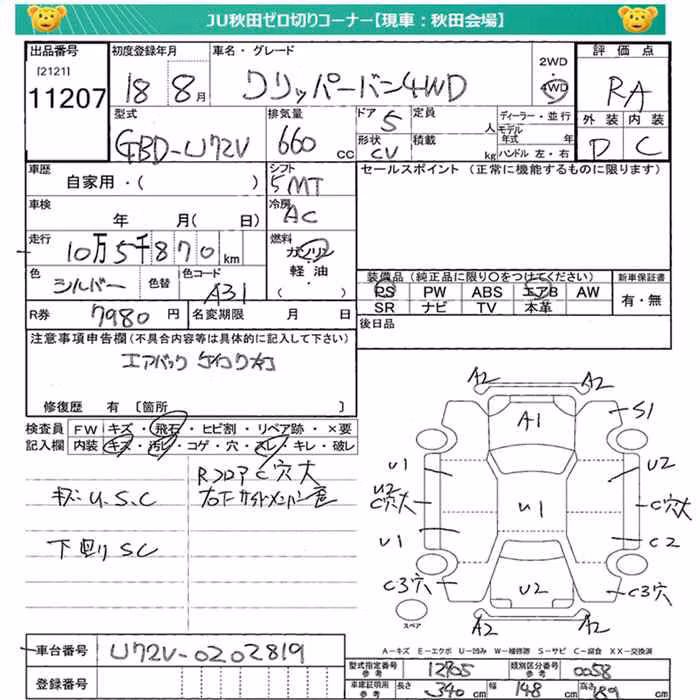 JU秋田ゼロ切りコーナー【現車：秋田会場】
出品番号 初度登録年月 車名・グレード 2WD 評価点
[2121] 11207 18 8月 クリッパーバン4WD 4WD RA
型式 排気量 ドア 定員 ディーラー・並行 外装 内装
GBD-U72V 660 CC 5 人 モデル年式 年 D C
形状 CV 積載 kg ハンドル 左・右
車歴 シフト セールスポイント（正常に機能するものに限ります）
自家用・( ) 5MT
車検 冷房
年 月( 日) AC
走行 燃料
10万5千870km ガソリン
軽油
( )
色 色替 色コード 装備品（純正品に限り○をつけてください） 新車保証書
シルバー A31 PS PW ABS エアB AW 有・無
SR ナビ TV 本革
R券 7980円 名変期限 月 日 後日品
注意事項申告欄（不具合内容等は具体的に記入して下さい）
エアバック
修復歴 有 [箇所 ]
検査員 FW キズ・飛石・ヒビ割・リペア跡・×要
記入欄 内装 キズ・汚レ・コゲ・穴・スレ・キレ・破レ
RフロアC穴大
右下サイドメンバー
キズU.S.C
下廻りSC
A2 A2
A1 S1
U1 U2
U2
C穴大 U1 C穴大
U1 C2
C3穴 U2 C3穴
スペア A2 A2
A－キズ E－エクボ U－凹み W－補修跡 S－サビ C－腐食 XX－交換済
車台番号 U72V-0202819
型式指定番号 参考 12905 類別区分番号 参考 0058
登録番号 車庫証明用 参考 長さ 340cm 幅 148cm 高さ 189cm